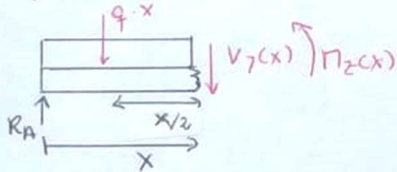 q·x
V_y(x) M_z(x)
R_A
x/2
x